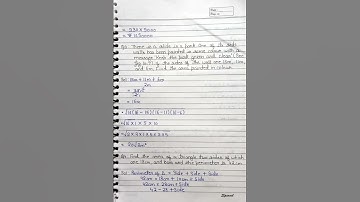 = 330 × 5000
= ₹ 1650000
Q3. There is a slide in a park. One of its side
walls has been painted in some colour with the
message "Keep the park green and clean" (see
fig 10.9). If the sides of the wall are 15m, 11m,
and 6m. Find the area painted in colour.
Sol. 15m + 11m + 6m
2m
= 32m
2
= 16m
= √16(16-15)(16-11)(16-6)
= √16 × 1 × 5 × 10
= 20√2m²
Q4. Find the area of a triangle two sides of which
are 18cm, and 10cm and the perimeter is 42cm.
Sol. Perimeter of Δ = Side + Side + Side
42cm = 18cm + 10cm + Side
42cm = 28cm + Side
42 - 28 = Side